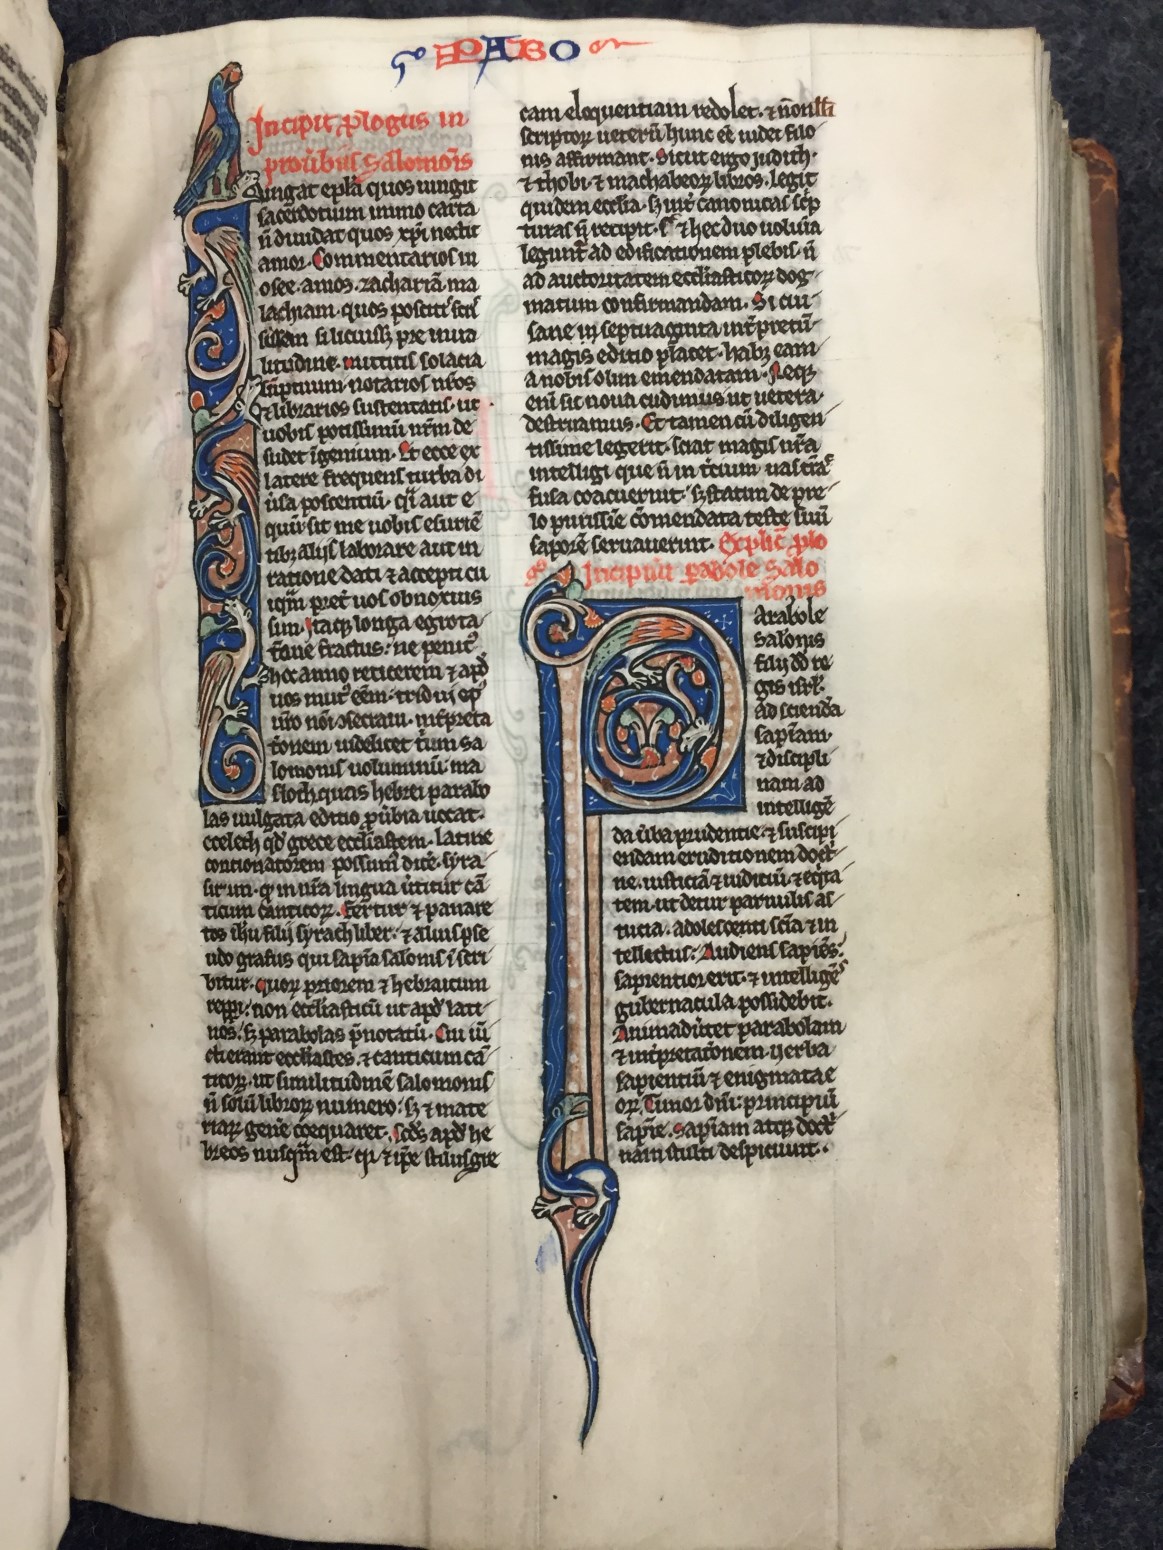 PABO
Incipit p̄logus in
prou̇biis salomōis
ungat ep̄la quos iungit
sacerdotium immo carta
n̄ diuidat quos xp̄i nectit
amor. Commentarios in
osee. amos. zachariā ma
lachiam. quos poscitis sc̄ri
litudine. Mittitis solacia
sūptuum. notarios nr̄os
⁊ librarios sustentatis. ut
uobis potissimū nr̄m de
sudet īgenium. Et ecce ex
latere frequens turba di
u̇sa poscentiū. q̄i aut e
quū sit me uobis esuriē
tib; aliis laborare aut in
ratione dati ⁊ accepti cu
iq̄m p̄ret̄ uos obnoxius
sim. Itaq; longa egrota
t̄one fractus. ne penit᷒
hoc anno reticerem ⁊ apd̄
uos mut᷒ eēm. tridui op᷒
nōi ɔsecraui. int̄preta
t̄onem uidelicet t̄ium sa
lomonis uoluminū. ma
sloth. quas hebrei parabo
las uulgata editio p̄uerbia uocat.
coelech qd̄ grece eccl̄iasten. latine
contionatorem possum᷒ dice᷒. syra
sirim. qd̄ in nr̄a lingua u̇titur cā
ticum canticoꝝ. Fertur ⁊ panare
tos ih̄u filii syrach liber. ⁊ alius pse
udo grafus qui sapīa salomōis ī scri
bitur. Quoꝝ priorem ⁊ hebraicum
repp̄i. non eccl̄iasticū ut apd̄ lati
nos. s; parabolas p̄notatū. Cui iū
cti erant eccl̄iastes. ⁊ canticum cā
ticoꝝ. ut similitudinē salomonis
n̄ solū libroꝝ numero. s; ⁊ mate
riaꝝ gen̄e coequaret. Sc̄ds apd̄ he
breos nusq̄m est. q̄i ⁊ ip̄e stilus gre
cam eloquentiam redolet. ⁊ n̄onll̄i
scriptoꝝ ueterū hunc eē iudei filo
nis affirmant. Sicut ergo judith.
⁊ thobi. ⁊ machabeoꝝ libros. legit
quidem eccl̄ia. s; int̄ canonicas sc̄rp
turas n̄ recipit. s̄ ⁊ hec duo uolu̅ia
legunt ad edificationem plebis. n̄
ad auctoritatem eccl̄iasticoꝝ dog
matum confirmandam. Si cui
sane in septuaginta int̄pretū
magis editio placet. hab; eam
a nobis olim emendatam. Neq;
eni̅ sic noua cudimus ut uetera
destruamus. Et tamen cū diligen
tissime legerit. sciat magis nr̄a
intelligi que n̄ in t̄cium uas trās
fusa coacuerint. s; statim de pre
lo purissīe cōmendata teste suū
saporē seruauerint. Explic̄ p̄lo
g᷒ Incipiūt parabole salo
monis
Arabole
salomis
filii dd̄ re
gis isrl̄.
ad sciendā
sapīam
⁊ discipli
nam ad
intelligē
da u̇ba prudentie. ⁊ suscipi
endam eruditionem doct̄
ne. iusticiā ⁊ iudiciū. ⁊ eq̄ita
tem. ut detur paruulis as
tucia. adolescenti scīa ⁊ in
tellectus. Audiens sapiēs.
sapientior erit. ⁊ intelligēs
gubernacula possidebit.
Animaduertet parabolam
⁊ int̄pretat̄onem. uerba
sapientiū ⁊ enigmata e
oꝝ. Timor dn̄i principiū
sapīe. Sapīam atq; doct̄
nam stulti despiciunt.